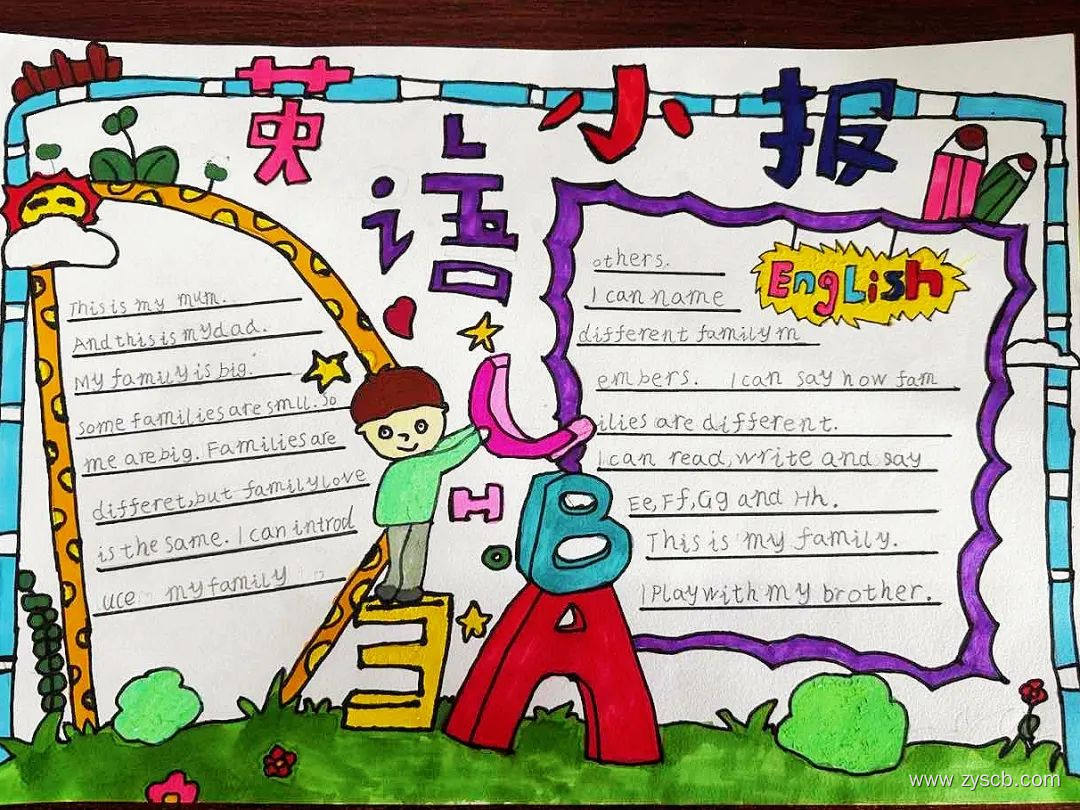 英语小报
L
This is my mum.
And this is my dad.
My family is big.
some families are smll. So
me are big. Families are
differet, but family love
is the same. I can introd
uce my family
others.
English
I can name
different family m
embers. I can say how fam
ilies are different.
I can read, write and say
Ee, Ff, Gg and Hh.
This is my family.
I Play with my brother.
H
B
A
E
www.zyscb.com